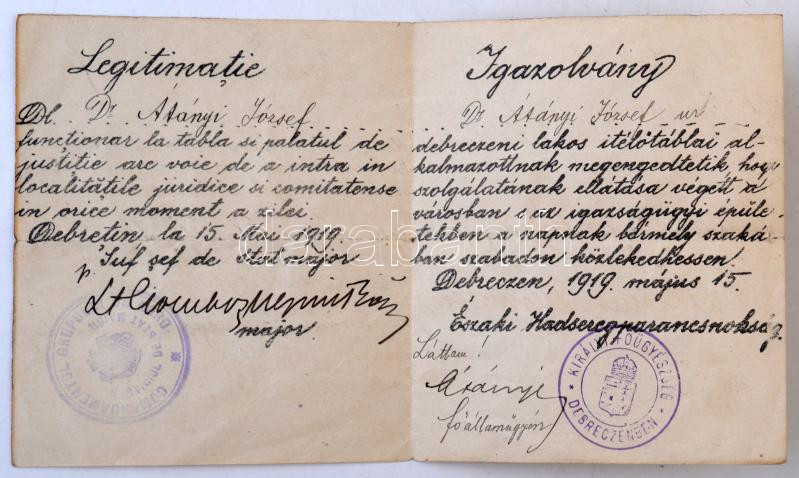 Legitimație
Dl. Dr Átányi József
functionar la tabla si palatul de
justitie are voie de a intra in
localitătile juridice si comitatense
in orice moment a zilei.
Debretin la 15. Mai 1919.
Suf șef de Stat major
p.
major.
COMANDAMENTUL GRUPULUI
DE STAT MAJOR
Igazolvány
Dr Átányi József ur
debreczeni lakos itélőtáblai al-
kalmazottnak megengedtetik hogy
szolgálatának ellátása végett a
városban s az igazságügyi épüle-
tekben a napnak bármely szaká-
ban szabadon közlekedhessen.
Debreczen, 1919. május 15.
Északi Hadseregparancsnokság.
Láttam!
Átányi
főállamügyész
KIRÁLYI FŐÜGYÉSZSÉG
DEBRECZENBEN
darabanth